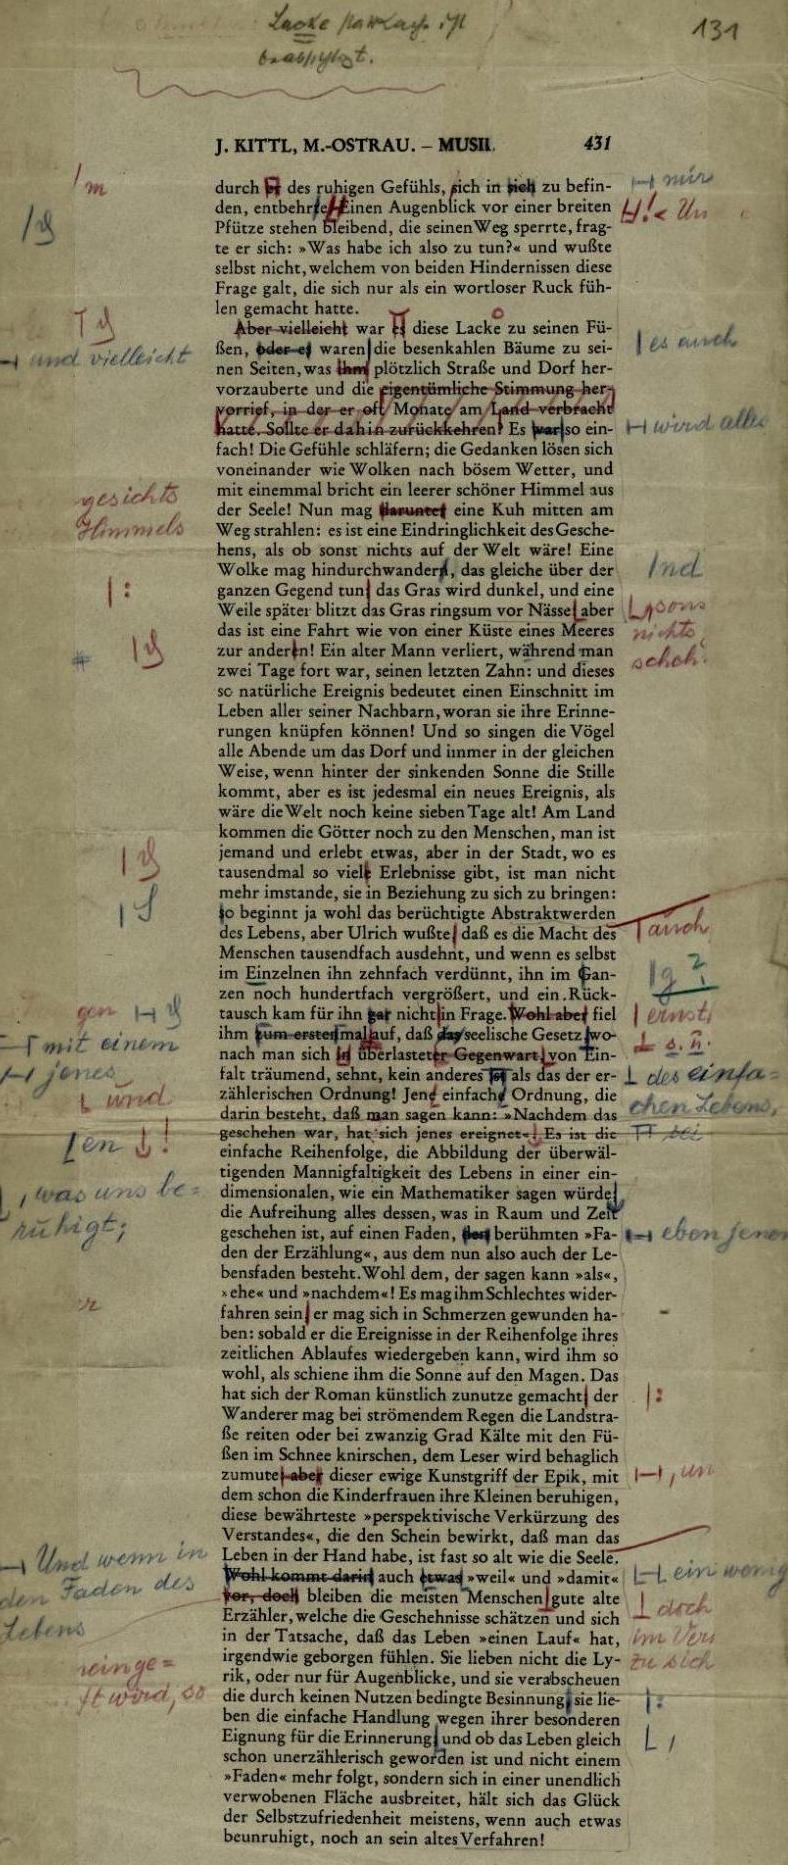 Lacke
131
J. KITTL, M.-OSTRAU. – MUSIL. 431
durch des ruhigen Gefühls, sich in sich zu befin-
mir
den, entbehrte Einen Augenblick vor einer breiten
Pfütze stehen bleibend, die seinen Weg sperrte, frag-
te er sich: »Was habe ich also zu tun?« und wußte
selbst nicht, welchem von beiden Hindernissen diese
Frage galt, die sich nur als ein wortloser Ruck füh-
len gemacht hatte.
Aber vielleicht war es diese Lacke zu seinen Fü-
es auch
und vielleicht
ßen, oder es waren die besenkahlen Bäume zu sei-
nen Seiten, was ihm plötzlich Straße und Dorf her-
vorzauberte und die eigentümliche Stimmung her-
vorrief, in der er oft Monate am Land verbracht
hatte. Sollte er dahin zurückkehren? Es war so ein-
wird alles
fach! Die Gefühle schläfern; die Gedanken lösen sich
voneinander wie Wolken nach bösem Wetter, und
mit einemmal bricht ein leerer schöner Himmel aus
gesichts
der Seele! Nun mag darunter eine Kuh mitten am
Himmels
Weg strahlen: es ist eine Eindringlichkeit des Gesche-
hens, als ob sonst nichts auf der Welt wäre! Eine
Wolke mag hindurchwandern, das gleiche über der
nd
ganzen Gegend tun das Gras wird dunkel, und eine
Weile später blitzt das Gras ringsum vor Nässe aber
sons
das ist eine Fahrt wie von einer Küste eines Meeres
nichts
zur andern! Ein alter Mann verliert, während man
zwei Tage fort war, seinen letzten Zahn: und dieses
so natürliche Ereignis bedeutet einen Einschnitt im
Leben aller seiner Nachbarn, woran sie ihre Erinne-
rungen knüpfen können! Und so singen die Vögel
alle Abende um das Dorf und immer in der gleichen
Weise, wenn hinter der sinkenden Sonne die Stille
kommt, aber es ist jedesmal ein neues Ereignis, als
wäre die Welt noch keine sieben Tage alt! Am Land
kommen die Götter noch zu den Menschen, man ist
jemand und erlebt etwas, aber in der Stadt, wo es
tausendmal so viele Erlebnisse gibt, ist man nicht
mehr imstande, sie in Beziehung zu sich zu bringen:
so beginnt ja wohl das berüchtigte Abstraktwerden
des Lebens, aber Ulrich wußte daß es die Macht des
auch
Menschen tausendfach ausdehnt, und wenn es selbst
im Einzelnen ihn zehnfach verdünnt, ihn im Gan-
zen noch hundertfach vergrößert, und ein Rück-
tausch kam für ihn gar nicht in Frage. Wohl aber fiel
gen
ernst
ihm zum erstenmal auf, daß das seelische Gesetz, wo-
mit einem
nach man sich in überlasteter Gegenwart, von Ein-
jenes
falt träumend, sehnt, kein anderes ist als das der er-
des einfa=
und
zählerischen Ordnung! Jene einfache Ordnung, die
chen Lebens,
darin besteht, daß man sagen kann: »Nachdem das
geschehen war, hat sich jenes ereignet«! Es ist die
en
einfache Reihenfolge, die Abbildung der überwäl-
tigenden Mannigfaltigkeit des Lebens in einer ein-
dimensionalen, wie ein Mathematiker sagen würde
, was uns be=
ruhigt;
die Aufreihung alles dessen, was in Raum und Zeit
geschehen ist, auf einen Faden, den berühmten »Fa-
eben jenen
den der Erzählung«, aus dem nun also auch der Le-
bensfaden besteht. Wohl dem, der sagen kann »als«,
»ehe« und »nachdem«! Es mag ihm Schlechtes wider-
er
fahren sein er mag sich in Schmerzen gewunden ha-
ben: sobald er die Ereignisse in der Reihenfolge ihres
zeitlichen Ablaufes wiedergeben kann, wird ihm so
wohl, als schiene ihm die Sonne auf den Magen. Das
hat sich der Roman künstlich zunutze gemacht der
Wanderer mag bei strömendem Regen die Landstra-
ße reiten oder bei zwanzig Grad Kälte mit den Fü-
ßen im Schnee knirschen, dem Leser wird behaglich
zumute aber dieser ewige Kunstgriff der Epik, mit
dem schon die Kinderfrauen ihre Kleinen beruhigen,
diese bewährteste »perspektivische Verkürzung des
Verstandes«, die den Schein bewirkt, daß man das
Leben in der Hand habe, ist fast so alt wie die Seele.
Und wenn in
Wohl kommt darin auch etwas »weil« und »damit«
ein wenig
den Faden des
vor, doch bleiben die meisten Menschen gute alte
doch
Lebens
Erzähler, welche die Geschehnisse schätzen und sich
in der Tatsache, daß das Leben »einen Lauf« hat,
irgendwie geborgen fühlen. Sie lieben nicht die Ly-
zu sich
rik, oder nur für Augenblicke, und sie verabscheuen
wird, so
die durch keinen Nutzen bedingte Besinnung, sie lie-
ben die einfache Handlung wegen ihrer besonderen
Eignung für die Erinnerung, und ob das Leben gleich
schon unerzählerisch geworden ist und nicht einem
»Faden« mehr folgt, sondern sich in einer unendlich
verwobenen Fläche ausbreitet, hält sich das Glück
der Selbstzufriedenheit meistens, wenn auch etwas
beunruhigt, noch an sein altes Verfahren!